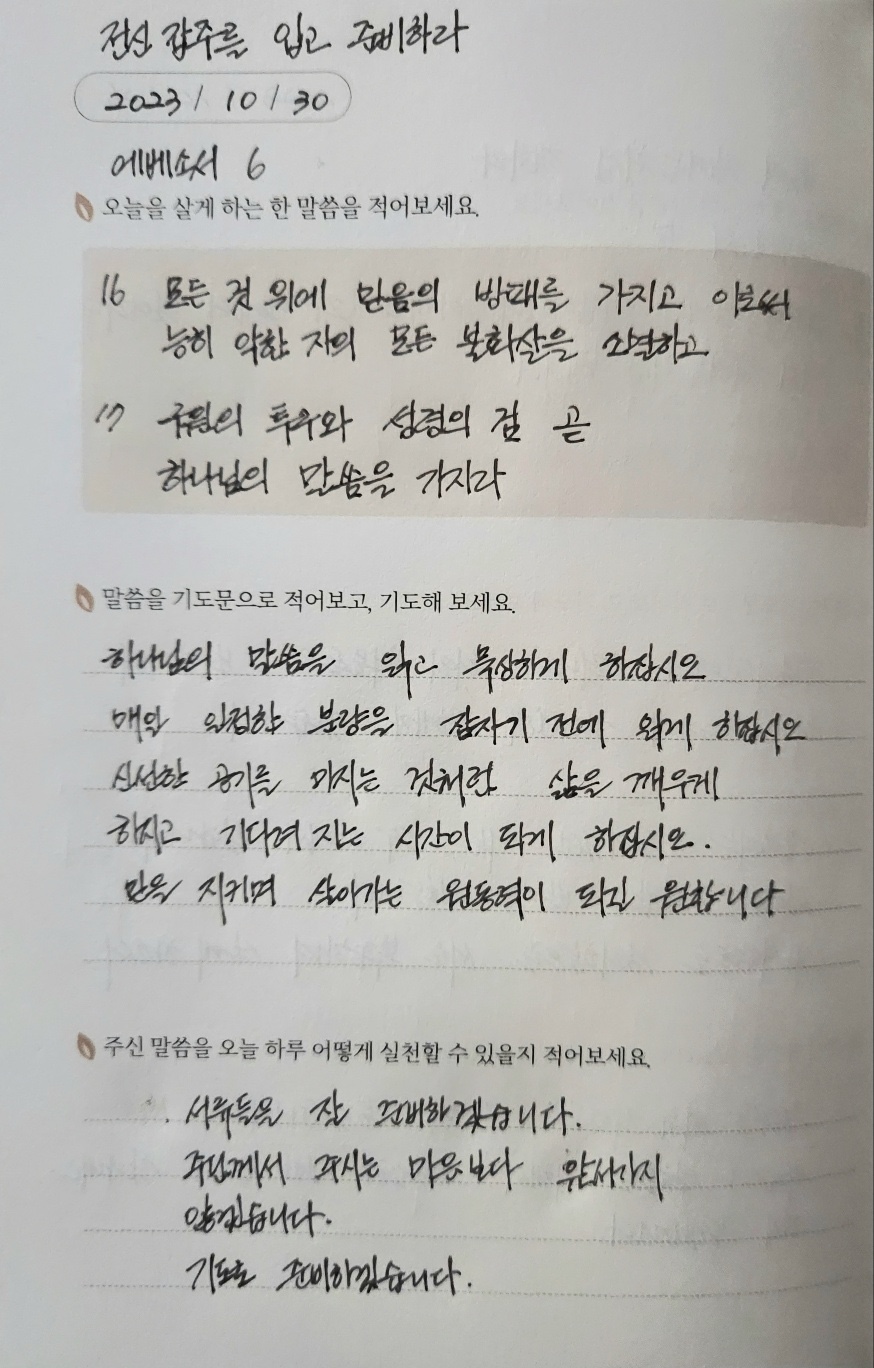 전신 갑주를 입고 준비하라
2023 / 10 / 30
에베소서 6
오늘을 살게 하는 한 말씀을 적어보세요.
16 모든 것 위에 믿음의 방패를 가지고 이로써
능히 악한 자의 모든 불화살을 소멸하고
17 구원의 투구와 성령의 검 곧
하나님의 말씀을 가지라
말씀을 기도문으로 적어보고, 기도해 보세요.
하나님의 말씀을 읽고 묵상하게 하십시오
매일 일정한 분량을 잠자기 전에 읽게 하십시오
신선한 공기를 마시는 것처럼 삶을 깨우게
하시고 기다려 지는 시간이 되게 하십시오.
믿음 지키며 살아가는 원동력이 되길 원합니다
주신 말씀을 오늘 하루 어떻게 실천할 수 있을지 적어보세요.
서류들을 잘 준비하겠습니다.
주님께서 주시는 마음보다 앞서가지
않겠습니다.
기도로 준비하겠습니다.